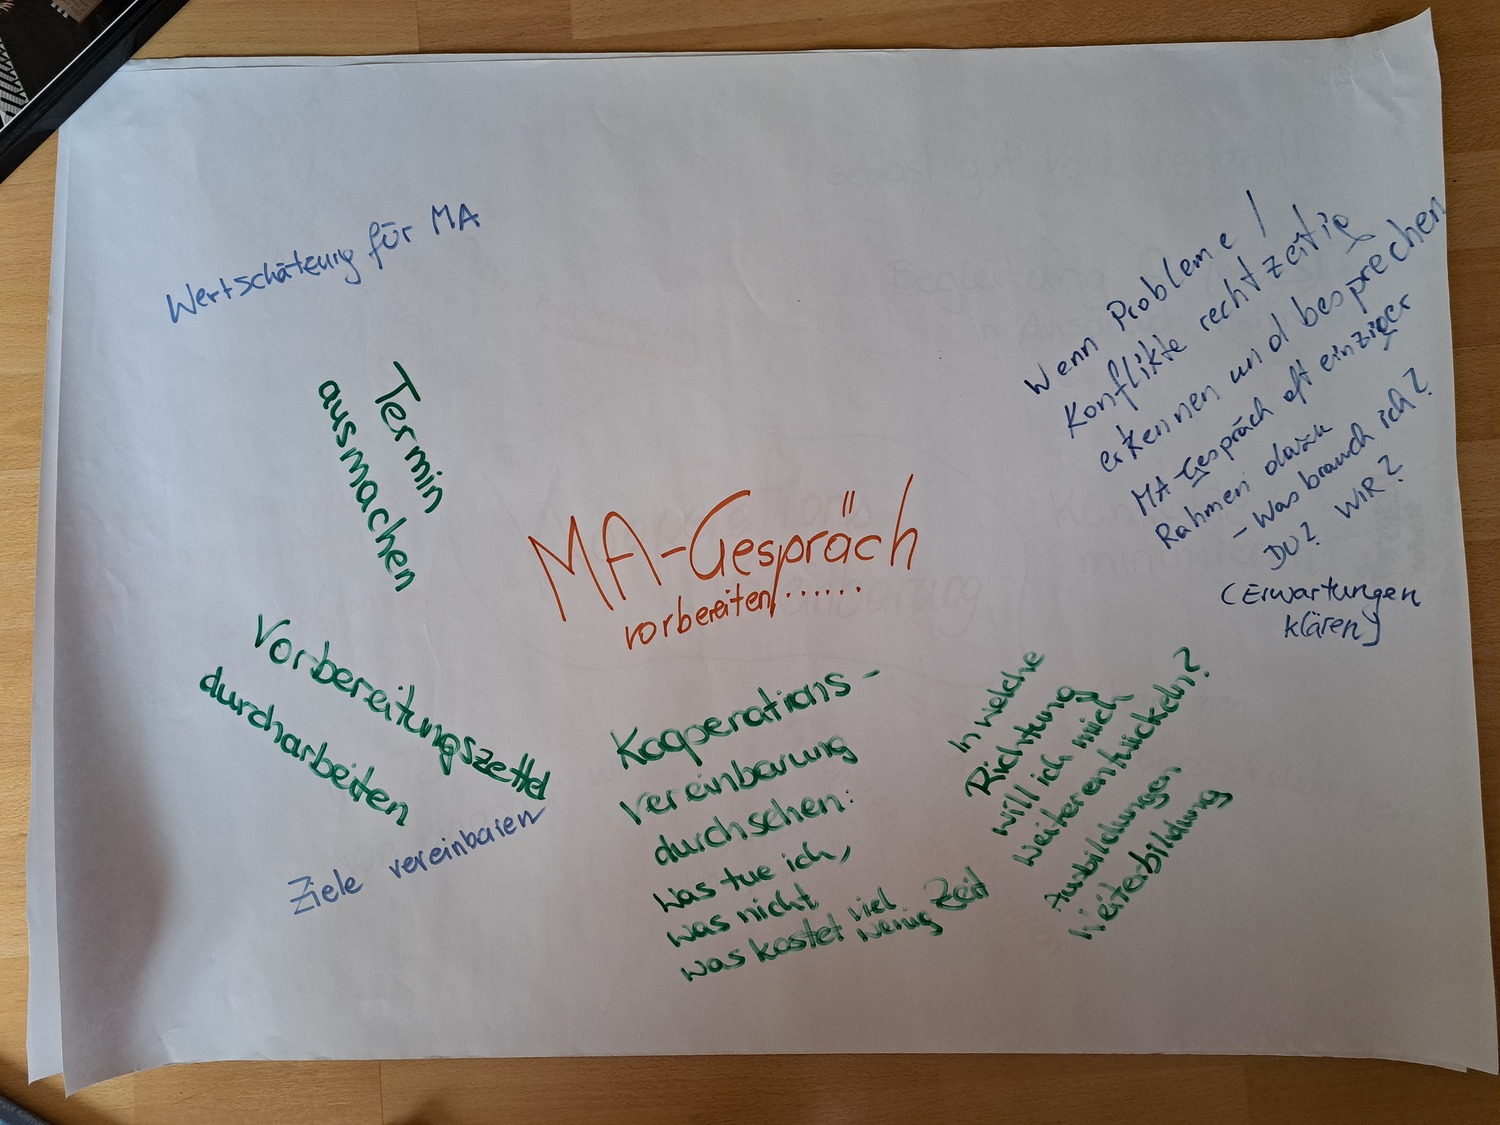 Wertschätzung für MA
Termin
ausmachen
MA-Gespräch
vorbereiten......
Wenn Probleme /
Konflikte rechtzeitig
erkennen und besprechen
MA-Gespräch oft einziger
Rahmen dazu
- Was brauch ich?
DU? WIR?
(Erwartungen
klären)
Vorbereitungszettel
durcharbeiten
Ziele vereinbaren
Kooperations-
vereinbarung
durchsehen:
Was tue ich,
was nicht
was kostet viel
wenig Zeit
In welche
Richtung
will ich mich
weiterentwickeln?
Ausbildungen
Weiterbildung